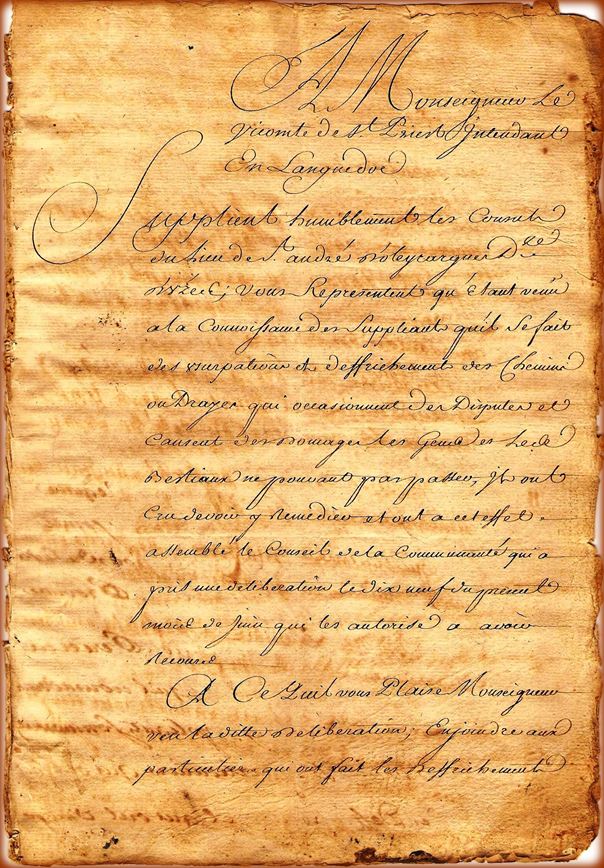 A Monseigneur Le
Vicomte de St Priest Intendant
En Languedoc
Supplient humblement les Consuls
du lieu de St. andré d'oleyrargues D.ze
d'Uzes; Vous Representent qu'Etant venü
a la Connoissance des Suppliant qu'il Se fait
des usurpations et deffrichement des Chemins
ou Drayes qui occasionnent des Disputes et
Causent des Domages les Gens et les
Bestiaux ne pouvant par passer, Ils ont
Cru devoir y remedier et ont a cet effet
assemblé le Conseil de la Communauté qui a
pris une deliberation le dix neuf du present
mois de juin qui les autorise a avoir
recours
A Ce Quil vous Plaise Monseigneur
veu la ditte deliberation, Enjoindre aux
particuliers qui ont fait les deffrichement